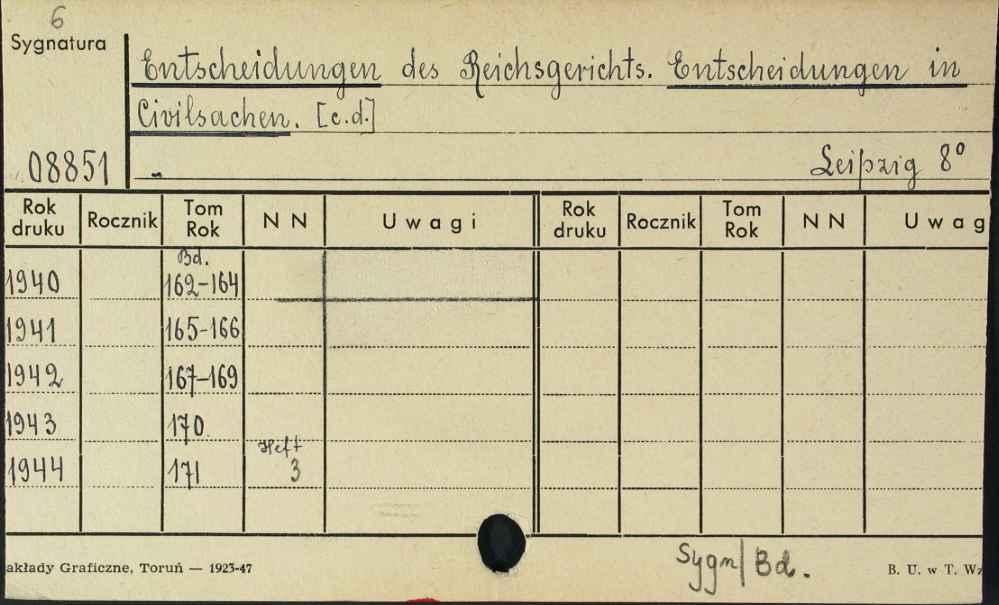 6
Sygnatura
Entscheidungen des Reichsgerichts. Entscheidungen in
Civilsachen. [c.d.]
08851
„
Leipzig 8°
Rok druku Rocznik Tom Rok N N Uwagi Rok druku Rocznik Tom Rok N N Uwag
Bd.
1940 162-164
1941 165-166
1942 167-169
1943 170
Heft
1944 171 3
Sygn/Bd.
akłady Graficzne, Toruń — 1923-47
B. U. w T. Wz